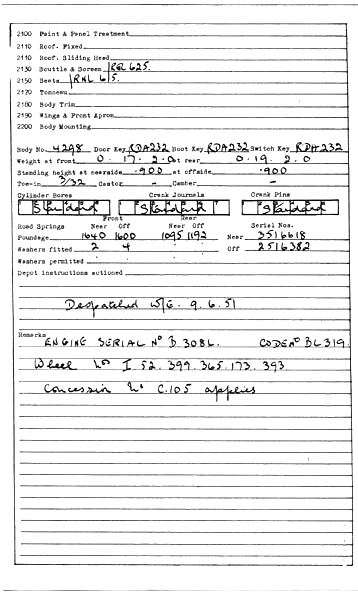 2100 Paint & Panel Treatment
2110 Roof. Fixed
2110 Roof. Sliding Head
2130 Scuttle & Screen RGL 625.
2150 Seats RNL 615.
2170 Tonneau
2180 Body Trim
2190 Wings & Front Apron
2200 Body Mounting
Body No. 4298 Door Key RDA232 Boot Key RDA232 Switch Key RDA232
Weight at front 0. 17. 2. 0 at rear 0. 19. 2. 0
Standing height at nearside .900 at offside .900
Toe-in 3/32 Castor - Camber -
Cylinder Bores Crank Journals Crank Pins
Standard Standard Standard
Front Rear
Road Springs Near Off Near Off Serial Nos.
Poundage 1640 1600 1095 1192 Near 3516618
Washers fitted 2 4 Off 2516382
Washers permitted
Depot instructions actioned
Despatched W/E. 9.6.51
Remarks
ENGINE SERIAL No B.308L. CODE No BL319.
Wheel No I. 52. 399. 365. 173. 393
Concession No C.105 applies